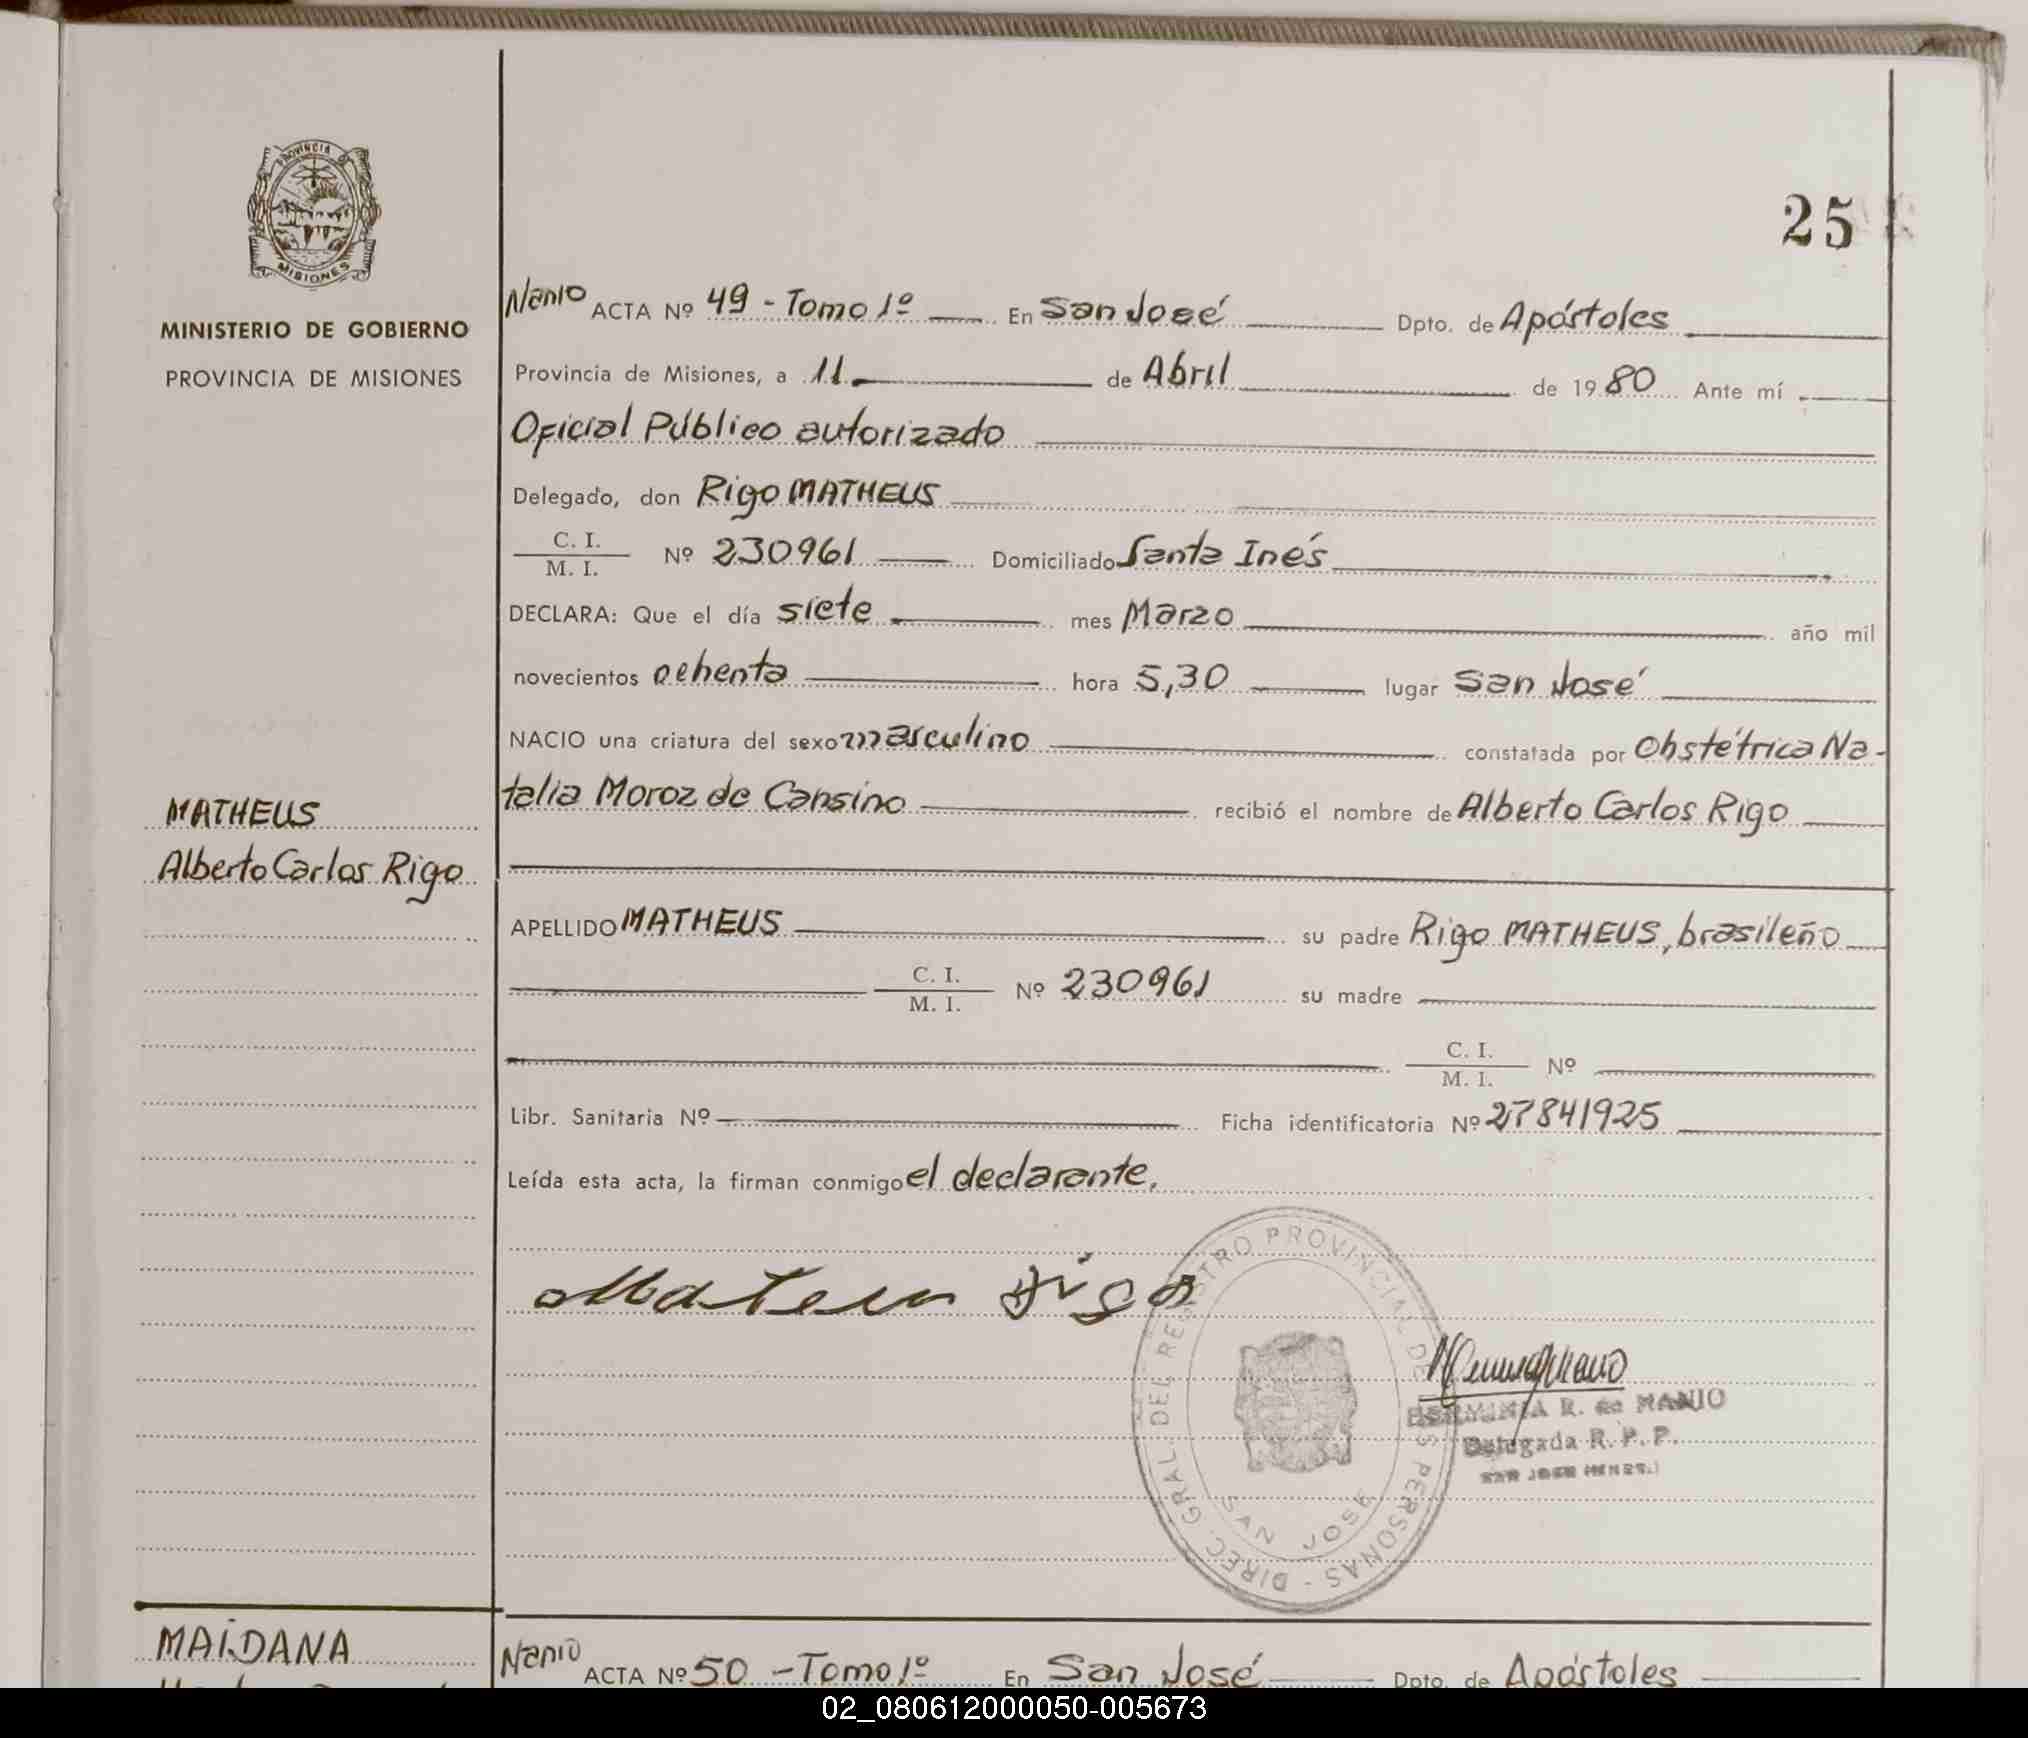 25
PROVINCIA DE
MISIONES
MINISTERIO DE GOBIERNO
PROVINCIA DE MISIONES
MATHEUS
Alberto Carlos Rigo
Nació ACTA Nº 49 - Tomo 1º En San José Dpto. de Apóstoles
Provincia de Misiones, a 11 de Abril de 1980 Ante mí
Oficial Público autorizado
Delegado, don Rigo MATHEUS
C. I.
M. I. Nº 230961 Domiciliado Santa Inés
DECLARA: Que el día siete mes Marzo año mil
novecientos ochenta hora 5,30 lugar San José
NACIO una criatura del sexo masculino constatada por Obstétrica Na-
talia Moroz de Cansino recibió el nombre de Alberto Carlos Rigo
APELLIDO MATHEUS su padre Rigo MATHEUS, brasileño
C. I.
M. I. Nº 230961 su madre
C. I.
M. I. Nº
Libr. Sanitaria Nº Ficha identificatoria Nº 27841925
Leída esta acta, la firman conmigo el declarante.
DIREC. GRAL. DEL REGISTRO PROVINCIAL DE LAS PERSONAS -
SAN JOSE
HERMINIA R. de NANIO
Delegada R. P. P.
MAIDANA
Nació ACTA Nº 50 - Tomo 1º En San José Dpto. de Apóstoles
02_080612000050-005673